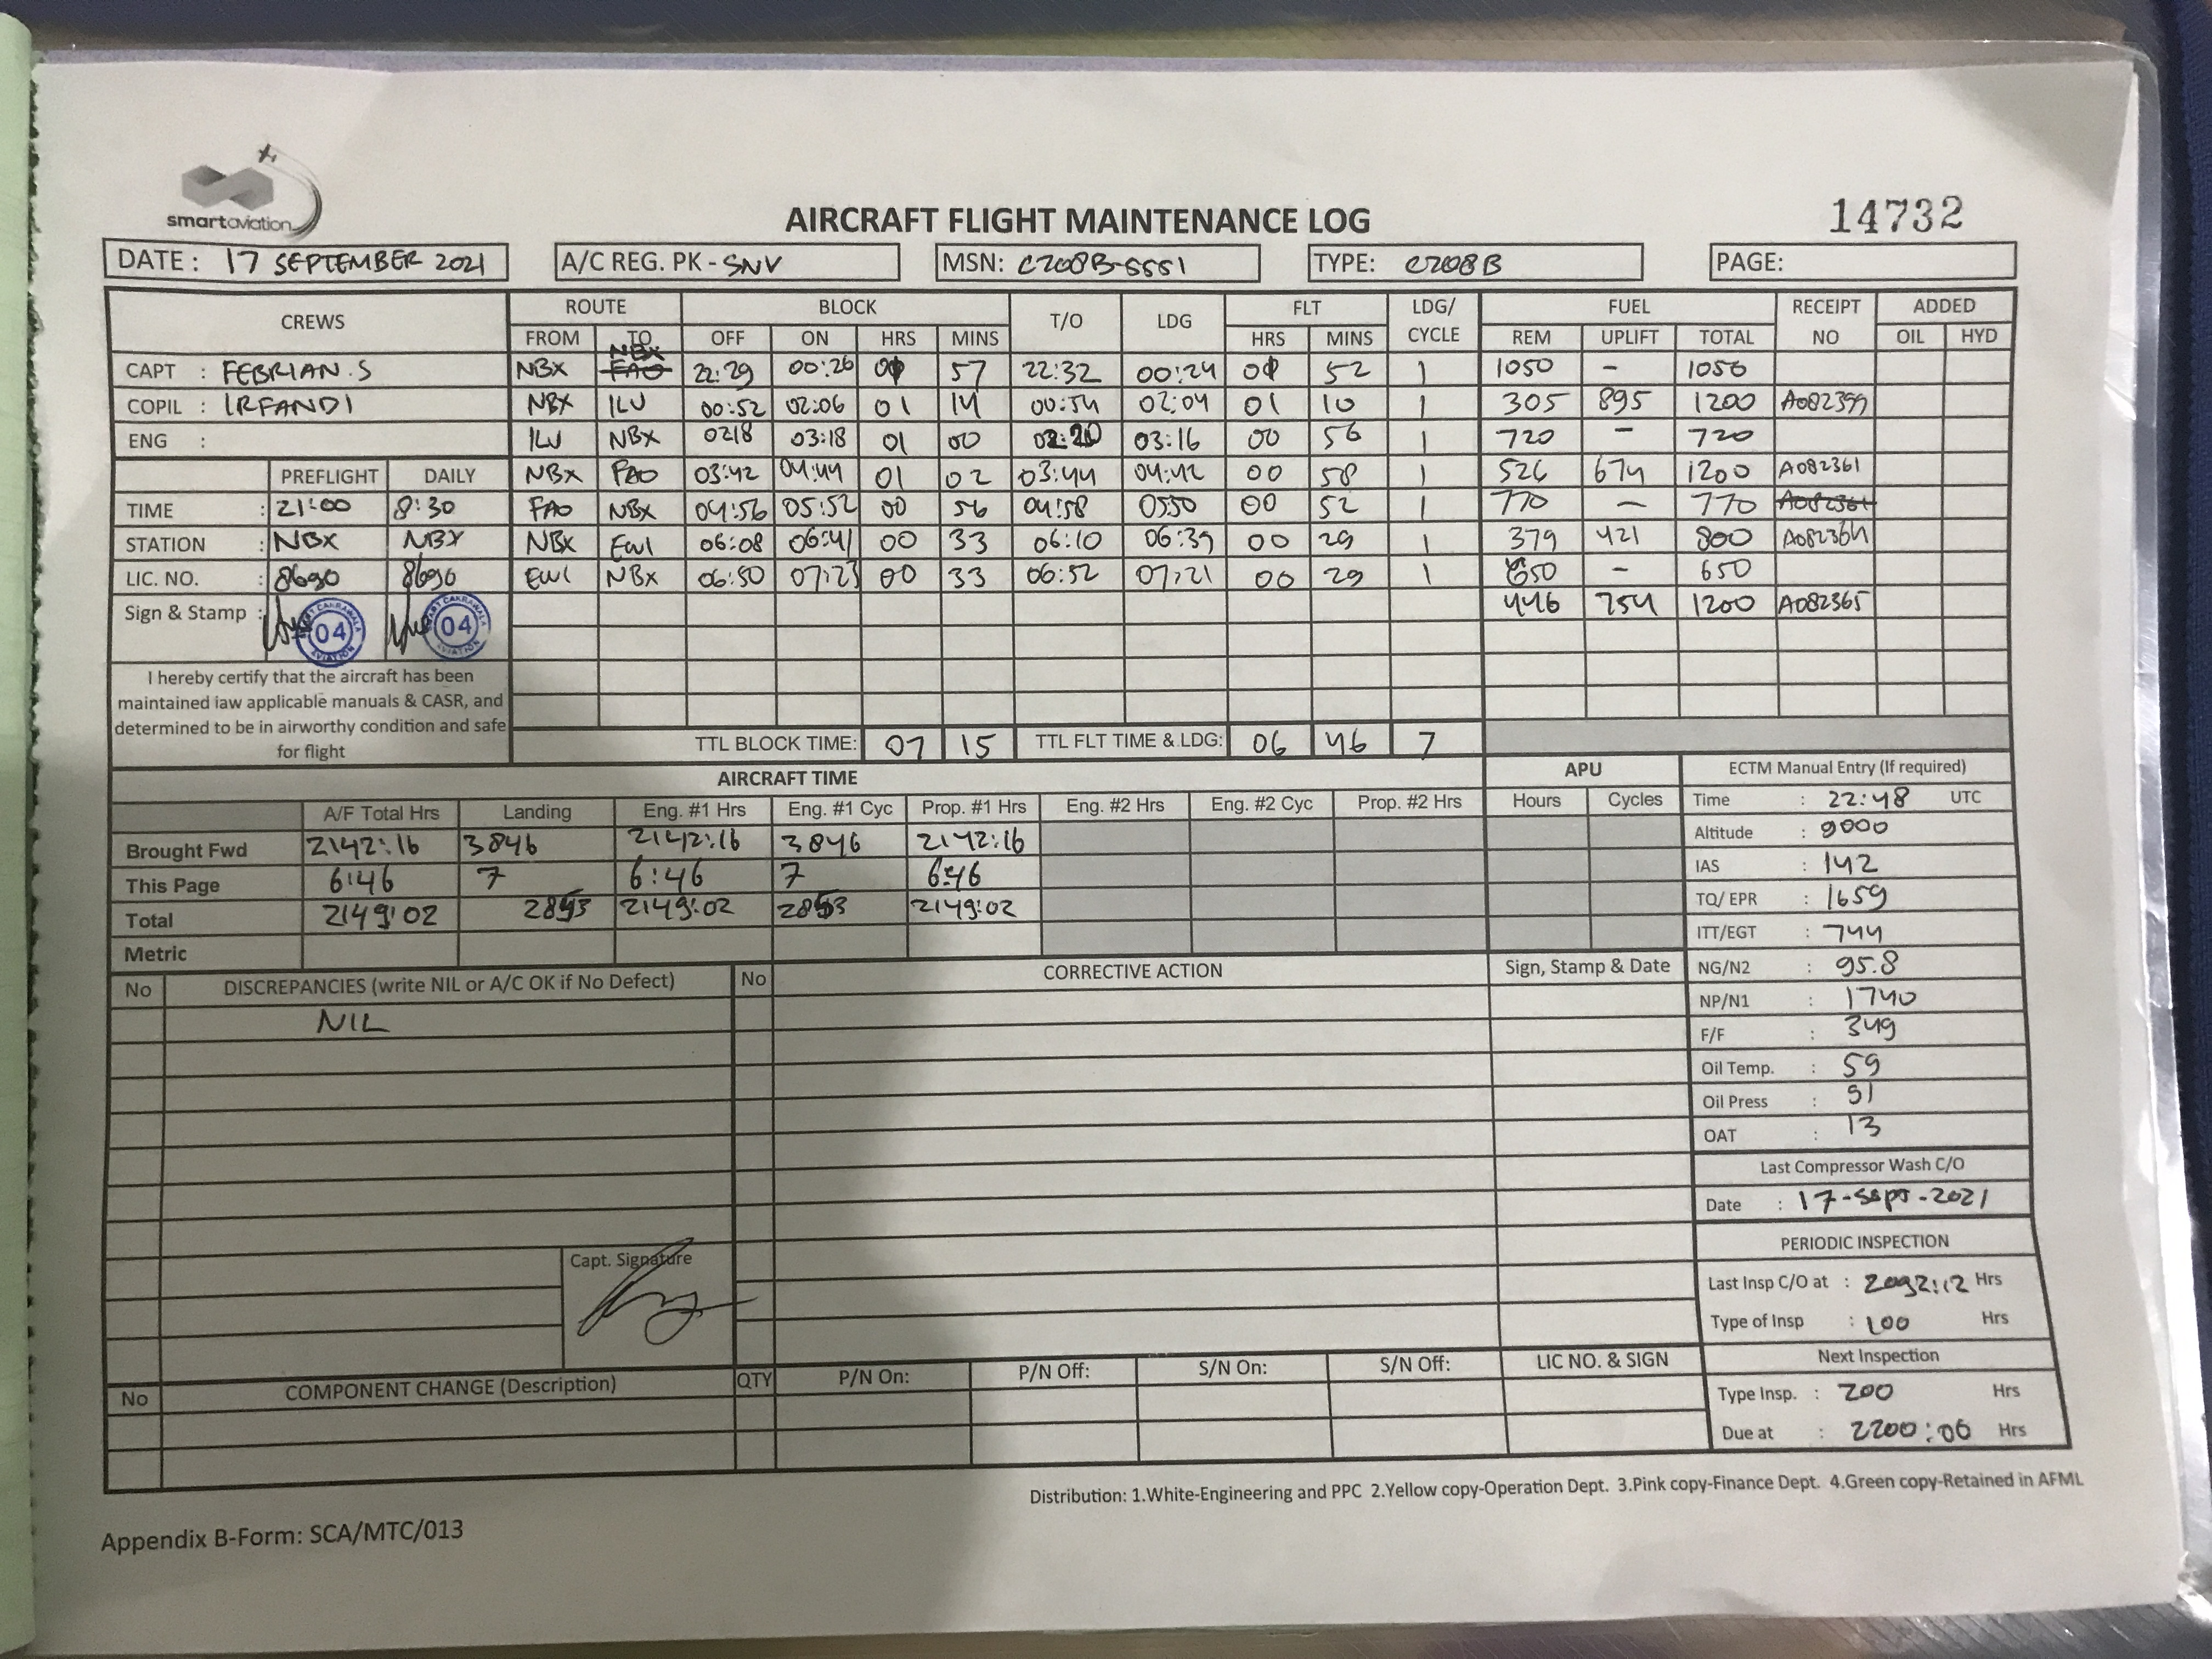 smartaviation
AIRCRAFT FLIGHT MAINTENANCE LOG
14732
DATE: 17 SEPTEMBER 2021
A/C REG. PK - SNV
MSN: C208B-5551
TYPE: C208B
PAGE:
CREWS ROUTE BLOCK T/O LDG FLT LDG/ CYCLE FUEL RECEIPT NO ADDED
FROM TO OFF ON HRS MINS HRS MINS REM UPLIFT TOTAL OIL HYD
CAPT : FEBRIAN.S NBX NBX 22:29 00:26 57 22:32 00:24 52 1 1050 - 1050
COPIL : IRFANDI NBX ILU 00:52 02:06 01 14 00:54 02:04 01 10 1 305 895 1200 A082399
ENG : ILU NBX 0218 03:18 01 00 02:20 03:16 00 56 1 720 - 720
PREFLIGHT DAILY NBX FAO 03:42 04:44 01 02 03:44 04:42 00 58 1 526 674 1200 A082361
TIME : 21:00 8:30 FAO NBX 04:56 05:52 00 56 04:58 0550 00 52 1 770 - 770 A082361
STATION : NBX NBX NBX EWI 06:08 06:41 00 33 06:10 06:39 00 29 1 379 421 800 A082364
LIC. NO. : 8690 8690 EWI NBX 06:50 07:23 00 33 06:52 07:21 00 29 1 650 - 650
Sign & Stamp : 446 754 1200 A082365
04 AVIATION 04 AVIATION
I hereby certify that the aircraft has been
maintained iaw applicable manuals & CASR, and
determined to be in airworthy condition and safe
for flight
TTL BLOCK TIME: 07 15 TTL FLT TIME & LDG: 06 46 7
AIRCRAFT TIME APU ECTM Manual Entry (If required)
A/F Total Hrs Landing Eng. #1 Hrs Eng. #1 Cyc Prop. #1 Hrs Eng. #2 Hrs Eng. #2 Cyc Prop. #2 Hrs Hours Cycles
Brought Fwd 2142:16 3846 2142:16 3846 2142:16
This Page 6:46 7 6:46 7 6:46
Total 2149:02 2853 2149:02 2853 2149:02
Metric
Time : 22:48 UTC
Altitude : 9000
IAS : 142
TQ/ EPR : 1659
ITT/EGT : 744
NG/N2 : 95.8
NP/N1 : 1740
F/F : 349
Oil Temp. : 59
Oil Press : 91
OAT : 13
Last Compressor Wash C/O
Date : 17-Sept-2021
PERIODIC INSPECTION
Last Insp C/O at : 2092:12 Hrs
Type of Insp : 100 Hrs
Next Inspection
Type Insp. : 200 Hrs
Due at : 2200:06 Hrs
No DISCREPANCIES (write NIL or A/C OK if No Defect) No CORRECTIVE ACTION Sign, Stamp & Date
NIL
Capt. Signature
No COMPONENT CHANGE (Description) QTY P/N On: P/N Off: S/N On: S/N Off: LIC NO. & SIGN
Distribution: 1.White-Engineering and PPC 2.Yellow copy-Operation Dept. 3.Pink copy-Finance Dept. 4.Green copy-Retained in AFML
Appendix B-Form: SCA/MTC/013